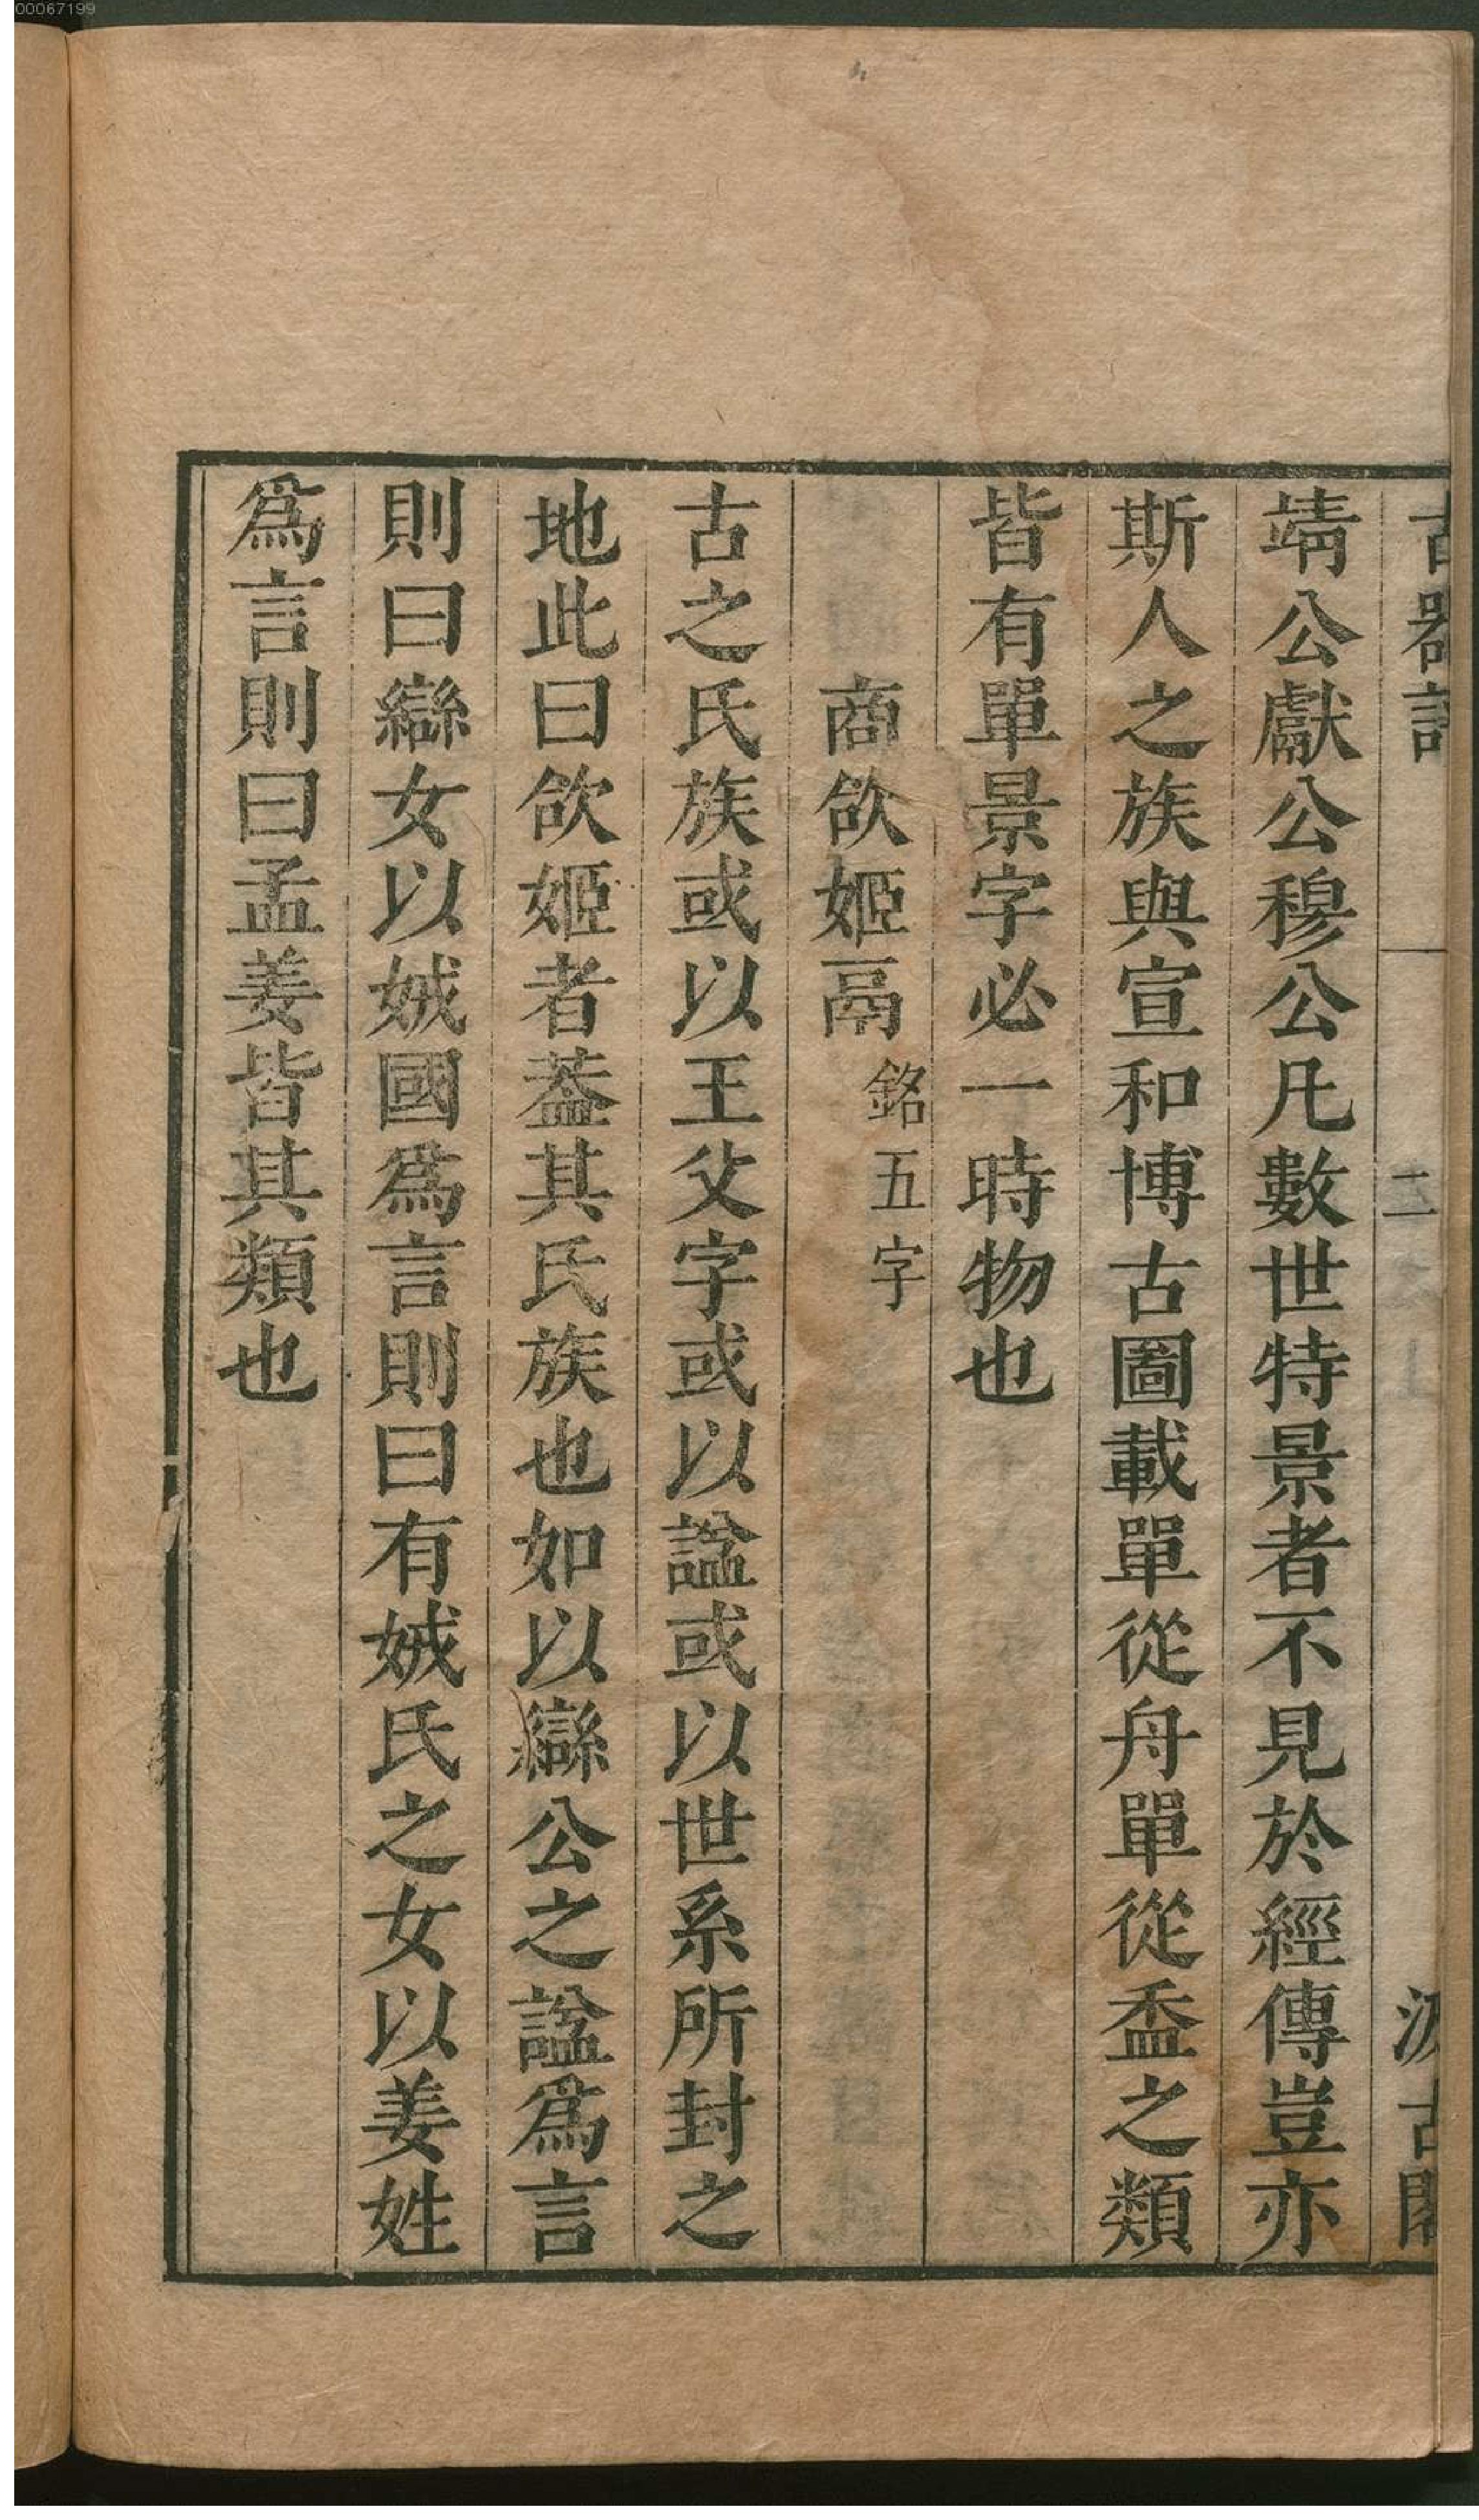 00067199
古器評 二 汲古閣
靖公獻公穆公凡數世特景者不見於經傳豈亦
斯人之族與宣和博古圖載單從舟單從盉之類
皆有單景字必一時物也
商欱姬鬲銘五字
古之氏族或以王父字或以諡或以世系所封之
地此曰欱姬者葢其氏族也如以䜌公之諡爲言
則曰䜌女以娀國爲言則曰有娀氏之女以姜姓
爲言則曰孟姜皆其類也